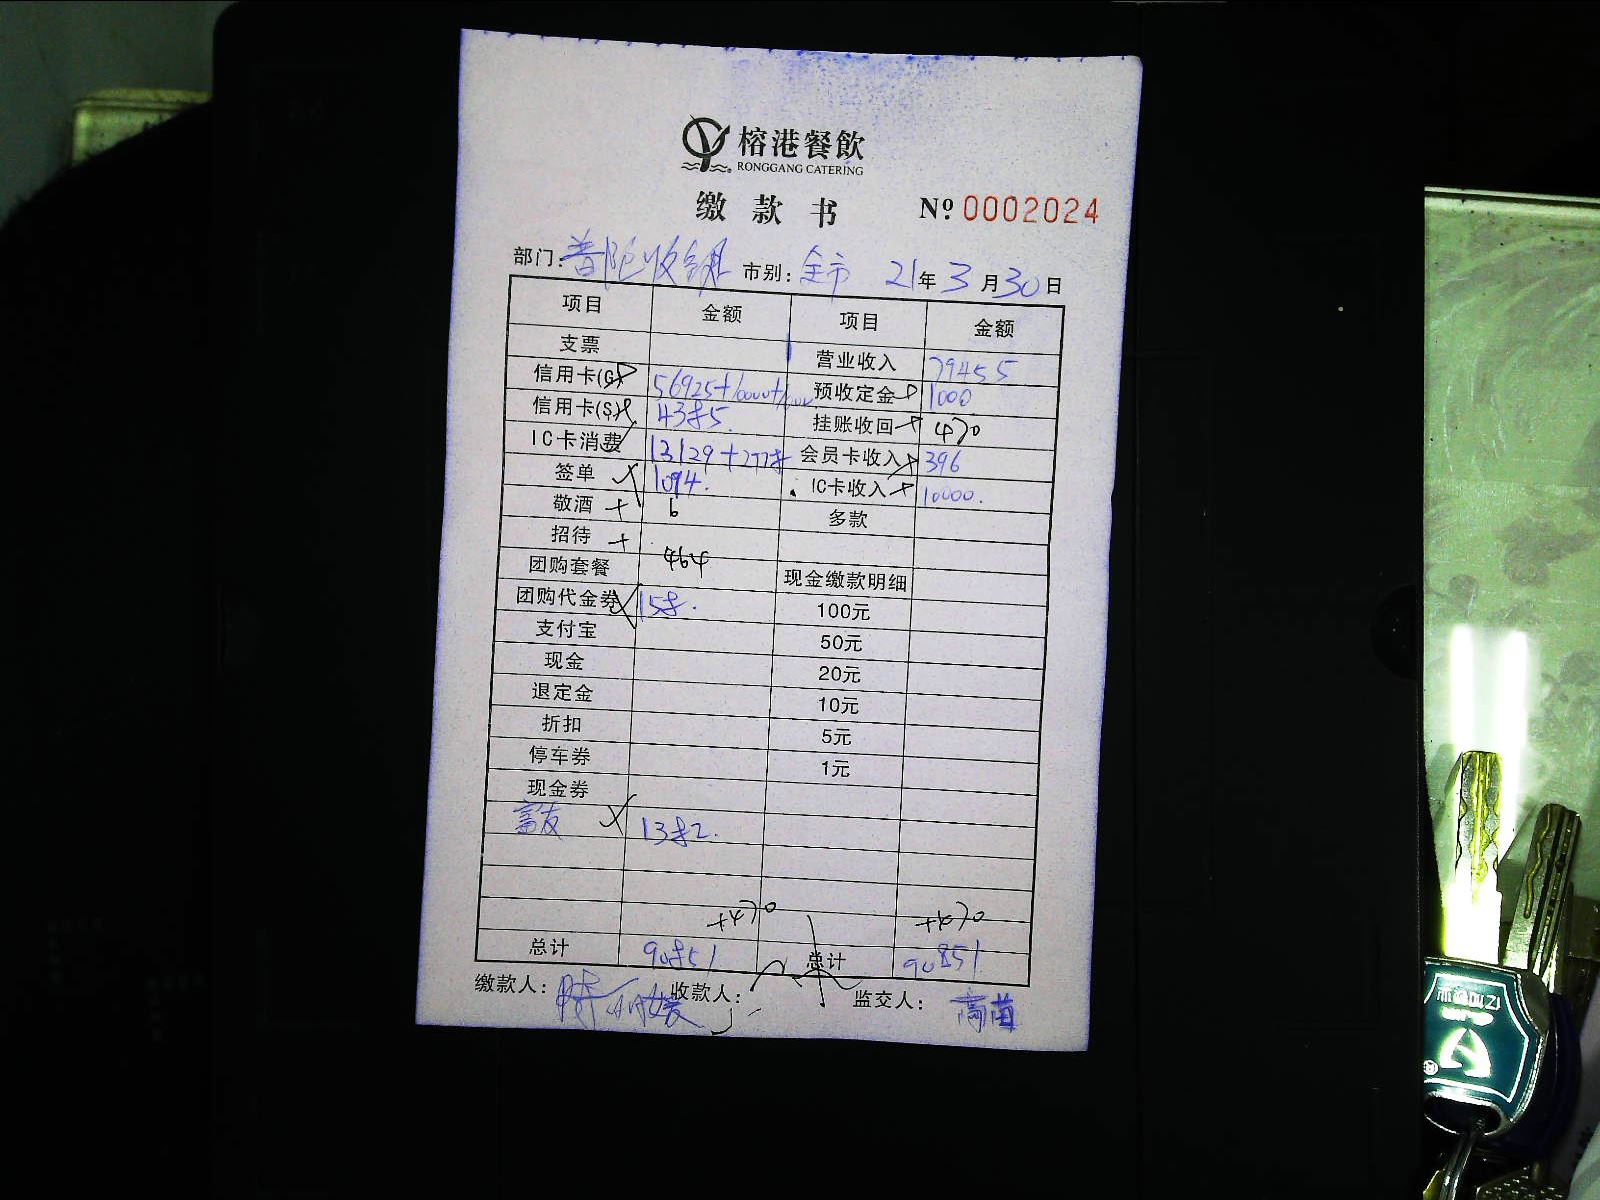 榕港餐飲
RONGGANG CATERING
缴款书 № 0002024
部门: 普陀收银 市别: 全市 21年3月30日
项目 金额 项目 金额
支票 营业收入 79455
信用卡(G) 56925+10000+ 预收定金 1000
信用卡(S) 4385. 挂账收回 470
IC卡消费 13129+2778 会员卡收入 396
签单 1094. IC卡收入 10000.
敬酒 6 多款
招待 464
团购套餐 现金缴款明细
团购代金券 158. 100元
支付宝 50元
现金 20元
退定金 10元
折扣 5元
停车券 1元
现金券
富友 1382.
+470 +470
总计 90851 总计 90851
缴款人: 收款人: 监交人: 高苗